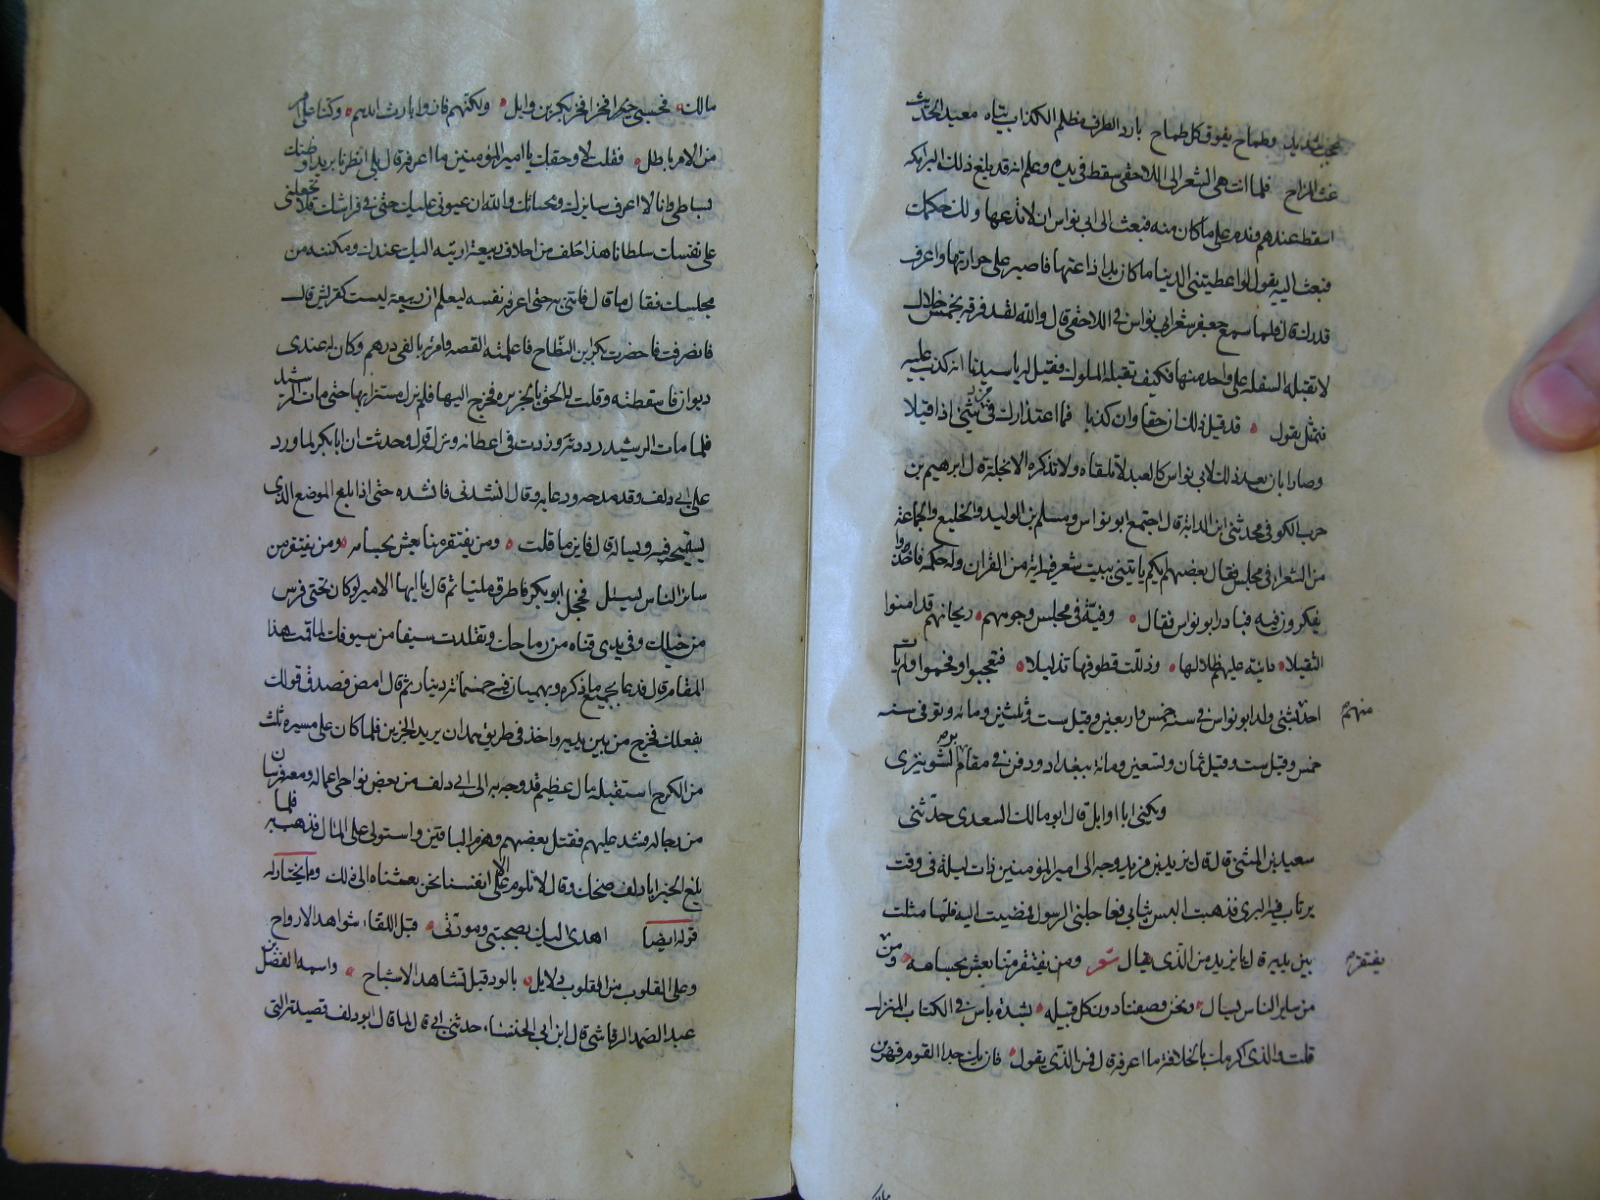 شديد وطماح يفوق كل طماح بارد الطرف مظلم الكذاب تياه معيد الحديث
غث المزاح فلما انتهى الشعر الى اللاحقي سقط في يده وعلم انه قد بلغ ذلك البرامكه
اسقط عندهم وندم على ما كان منه فبعث الى ابي نواس ان لا تذعها ولك حكمك
فبعث اليه يقول لو اعطيتني الدنيا ما كان بد اذاعتها فاصبر على حرارتها واعرف
قدرك قال فلما سمع جعفر شعر ابي نواس في اللاحقي قال والله لقد قرفه بخمس خلال
لا تقبله السفله على واحده منها فكيف تقبله الملوك فقيل له يا سيدنا انه كذب عليه
فتمثل يقول قد قيل ذلك ان حقا وان كذبا فما اعتذارك من شي اذا قيلا
وصار ابان بعد ذلك لابي نواس كالعبد لا يلقاه ولا تذكره الا نجله قال ابرهيم بن
حرب الكوفي حدثني ابن الدايه قال اجتمع ابو نواس ومسلم بن الوليد والخليع والجماعة
من الشعرا في مجلس فقال بعضهم ايكم ياتيني ببيت شعر فيه اية من القران وله حكمه فاخذوا
يفكرون فيه فبادر ابو نواس فقال وفتية في مجلس وجوههم ريحانهم قد امنوا
الثقيلا دانية عليهم ظلالها وذللت قطوفها تذليلا فتعجبوا وفحموا ولم يات
منهم
احد بشي ولد ابو نواس في سنة خمس واربعين وقيل ست وثلثين ومائه وتوفي سنه
خمس وقيل ست وقيل ثمان وتسعين ومائة ببغداد ودفن في مقابر الشونيزي
ويكنى ابا وايل قال ابو مالك السعدي حدثني
سعيد بن المثنى قال قال يزيد بن مزيد وجه الى امير المؤمنين ذات ليلة في وقت
يرتاب فيه البري فذهبت البس ثيابي فعاجلني الرسول فمضيت اليه فلما مثلت
يفتقر
بين يديه قال يا يزيد من الذي يقال شعر ومن يفتقر منا يعش بحسامه ومن
من ساير الناس يسال ونحن وصفنا دون كل قبيله بشدة باس في الكتاب المنزل
قلت والذي اكرمك بالخلافة ما اعرفه قال فمن الذي يقول فان يك جدا القوم فهر بن
مالك فحسبي فخرا فخر بكر بن وايل ولكنهم فازوا بارث ابيهم وكنا على امر
من الامر باطل فقلت لا وحقك يا امير المؤمنين ما اعرفه قال بلى
بساطي وانا لا اعرف والله ان عيوني عليك حتى في فراشك فلا تجعلني
على نفسك سلطانا هذا حلف من احلاف ربيعة اويته اليك عندك ومكنته من
مجلسك فقال ما قال فائتني به حتى اعرفه نفسه ليعلم ان ربيعة ليست كقريش قال
فانصرفت فاحضرت بكر ابن النطاح فاعلمته القصه وامرت له بالفي درهم وكان له عندي
ديوان فاسقطته وقلت له الحق بالجزيره فخرج اليها فلم يزل مستترا بها حتى مات الرشيد
فلما مات الرشيد رددته وزدت في اعطائه ونزل قول وحدثت ان ابا بكر لما ورد
على ابي دلف وقد مدحه ودعا به وقال انشدني فانشده حتى اذا بلغ الموضع الذي
يستميح فيه ويساله قال فاين ما قلت ومن يفتقر منا يعش بحسامه ومن يفتقر من
سائر الناس يسئل فخجل ابو بكر فاطرق مليا ثم قال يا ايها الامير لو كان تحتي فرس
من خيلك وفي يدي قناه من رماحك وتقلدت سيفا من سيوفك لما قمت هذا
المقام قال فدعا بجميع ما ذكره وبهميان فيه خمسمائة دينار ثم قال امض فصدق قولك
بفعلك فخرج من بين يديه واخذ في طريق همدان يريد الجزين فلما كان على مسيره ثلث
من الكرج استقبله مال عظيم قد وجه به الى ابي دلف من بعض نواحي اعماله ومعه فرسان
من رجاله فشد عليهم فقتل بعضهم وهزم الباقين واستولى على المال فذهب به فلما
بلغ الخبر ابا دلف ضحك وقال لا تلوم على الا انفسنا نحن بعثناه الى ذلك ومما يختار له
قوله ايضا اهدى اليك بصحبتي ومودتي قبل اللقاء شواهد الارواح
وعلى القلوب من القلوب دلايل بالود قبل تشاهد الاشباح واسمه الفضل بن
عبد الصمد الرقاشي قال ابن ابي الخنساء حدثني ابي قال لما قال ابو دلف قصيدته التي